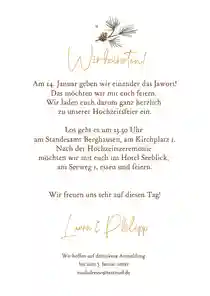 Wir heiraten!
Am 24. Januar geben wir einander das Jawort!
Das möchten wir mit euch feiern.
Wir laden euch darum ganz herzlich
zu unserer Hochzeitsfeier ein.
Los geht es um 13.30 Uhr
am Standesamt Berghausen, am Kirchplatz 1.
Nach der Hochzeitszeremonie
möchten wir mit euch im Hotel Seeblick,
am Seeweg 1, essen und feiern.
Wir freuen uns sehr auf diesen Tag!
Luisa & Philipp
Wir hoffen auf definitive Anmeldung
bis zum 5. Januar unter